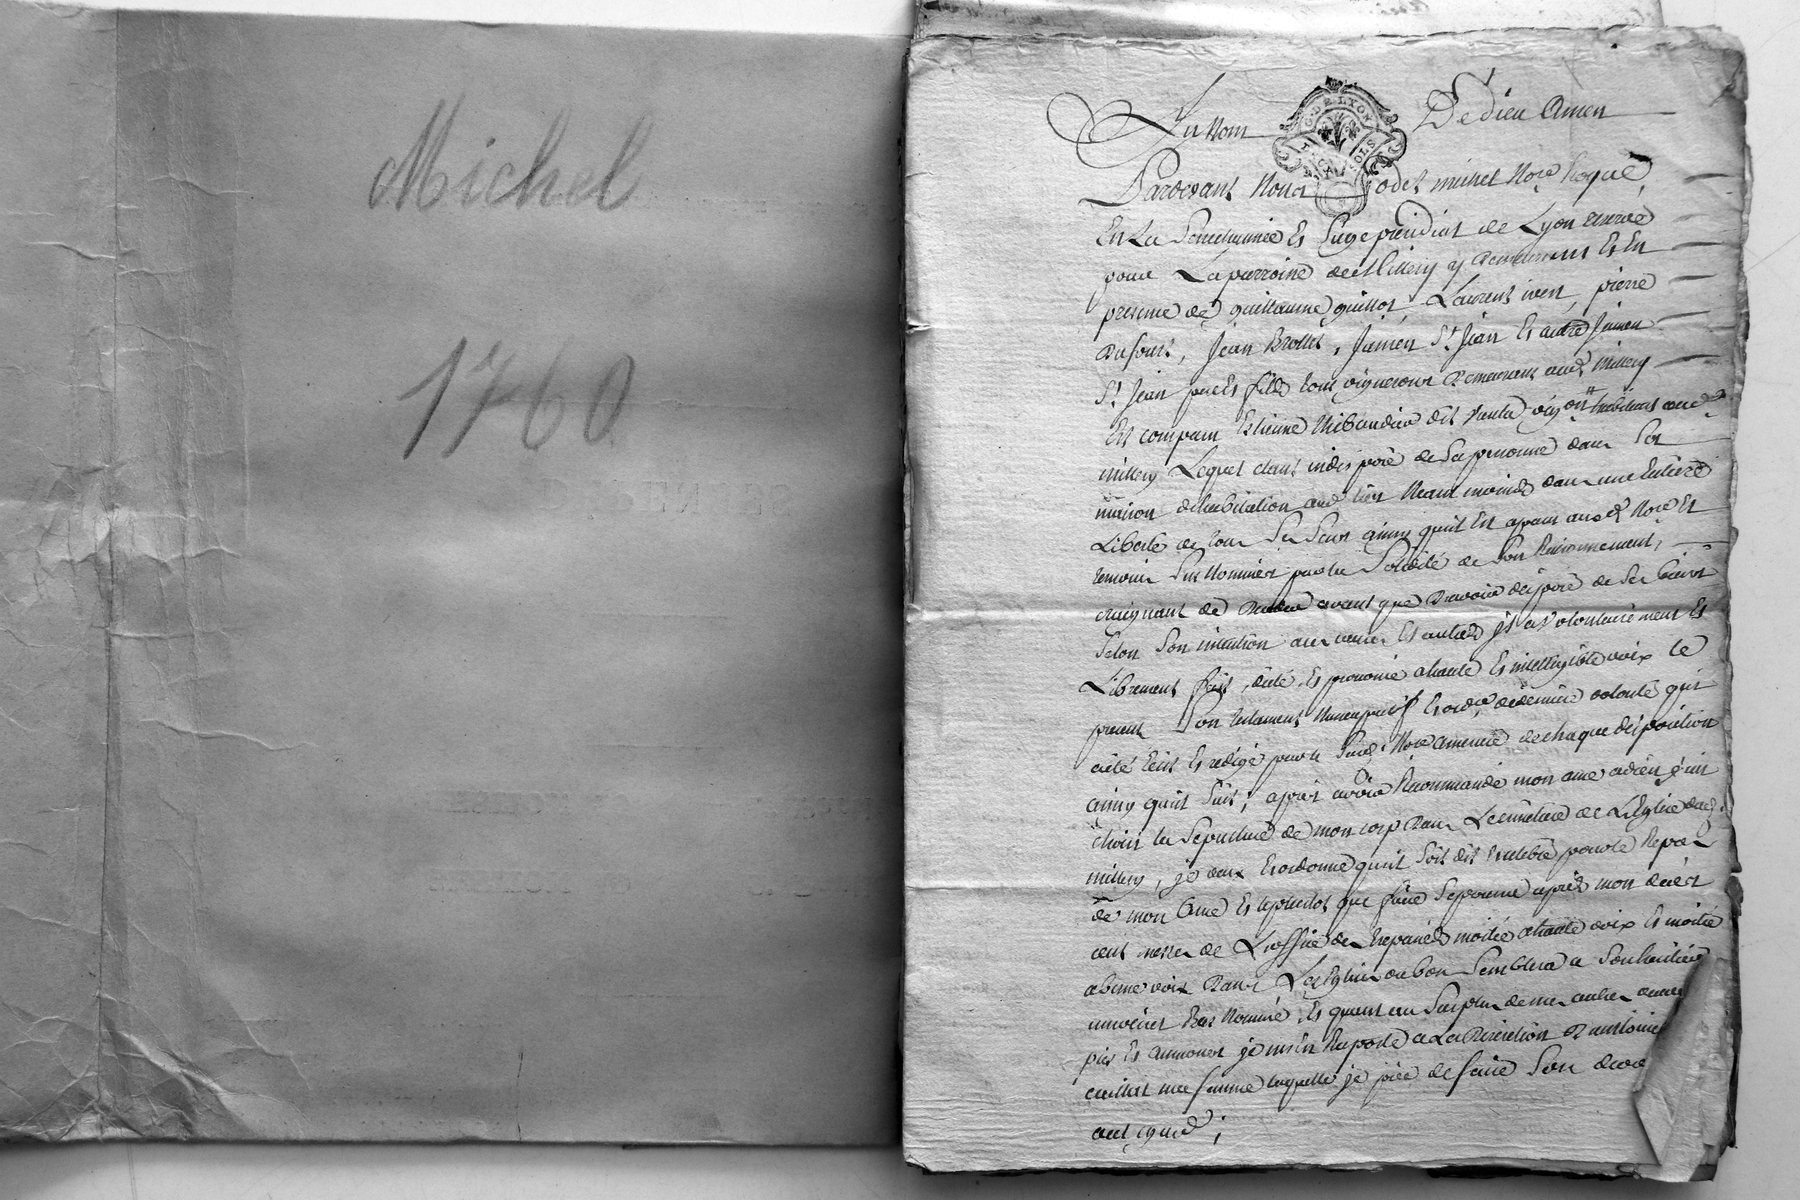 Michel
1760
G. DE LYON
SOLS
Au Nom De dieu Amen
Pardevant Nous odet michel Nore Royal
En La Senechaussée Et Siege presidial de Lyon reservé
pour La parroisse de Millery y demeurant Et En
presence de guillaume guillot, Laurent iven, pierre
Dufour, Jean Brottet, Jamen St Jean Et autre Jamen
St Jean pere Et fils tous vignerons demeurans aud millery
Est comparu Estienne thibaudier dit habitant aud
millery Lequel etant indisposé de Sa personne dans Sa
maison d'habitation aud lieu Neant moins dans une Entiere
Liberté de tous Ses Sens ainsy quil Est aparu aud Nore Et
temoins Sus Nommés par la Solidité de Son Raisonnement,
craignant de deceder avant que D'avoir disposé de Ses biens
Selon Son intention au moyen Et autres il a volontairement Et
Librement fait, dicté, Et prononcé a haute Et intelligible voix le
present Son testament Nuncupatif Et ordre de derniere volonté qui
a été Ecrit Et redigé par le Susd Nore a mesure de chaque disposition
ainsy quil Suit; apres avoir Recommandé mon ame a dieu j'ai
choisi la Sepulture de mon corp Dans Le cimetiere de L'Eglise dud
millery, je veux Et ordonne quil Soit dit Et celebré pour le Repos
de mon Ame Et le plustot que faire Se pourra après mon decès
cent messes de L'office des trepassés moitié a haute voix Et moitié
a basse voix Dans Les Eglises ou bon Semblera a Son heritiere
Bas Nommée, Et quant au Surplus de mes autres œuvres
pies Et aumones je m'en Raporte a La Discretion D'antoinette
ma femme laquelle je prie de faire Son devoir
;